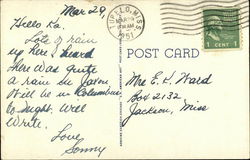 Mar 29
Hello Ka.
Lots of rain
up here. I heard
there was quite
a rain in Jaxon
Will be in Columbus
to night. Will
write.
Love,
Sonny
TUPELO, MISS.
1951
1¢
POST CARD
Mrs E. H Ward
Box 2132
Jackson, Miss